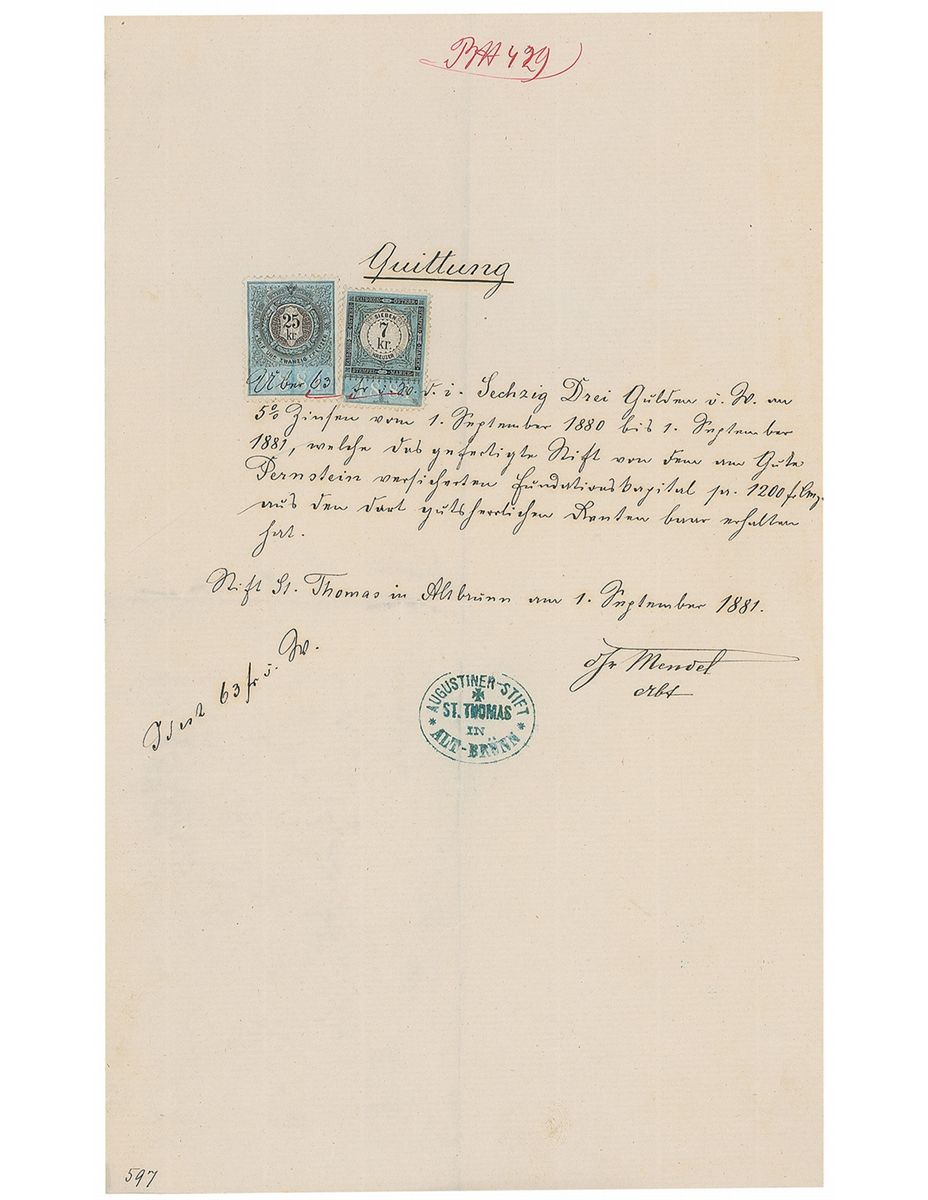 429
Quittung
25
kr.
SIEBEN
7
kr.
KREUZER
STEMPEL MARKE
Über 63 fr ö. W. d. i. Sechzig Drei Gulden ö. W. an
5% Zinsen vom 1. September 1880 bis 1. September
1881, welche das gefertigte Stift von dem am Gute
Pernstein versicherten Fundationskapital pr. 1200 f Cmz.
aus den dort gutsherrlichen Renten baar erhalten
hat.
Stift St. Thomas in Altbrünn am 1. September 1881.
Id est 63 fr ö. W.
Gr Mendel
Abt
AUGUSTINER-STIFT
ST. THOMAS
IN
ALT-BRÜNN
597